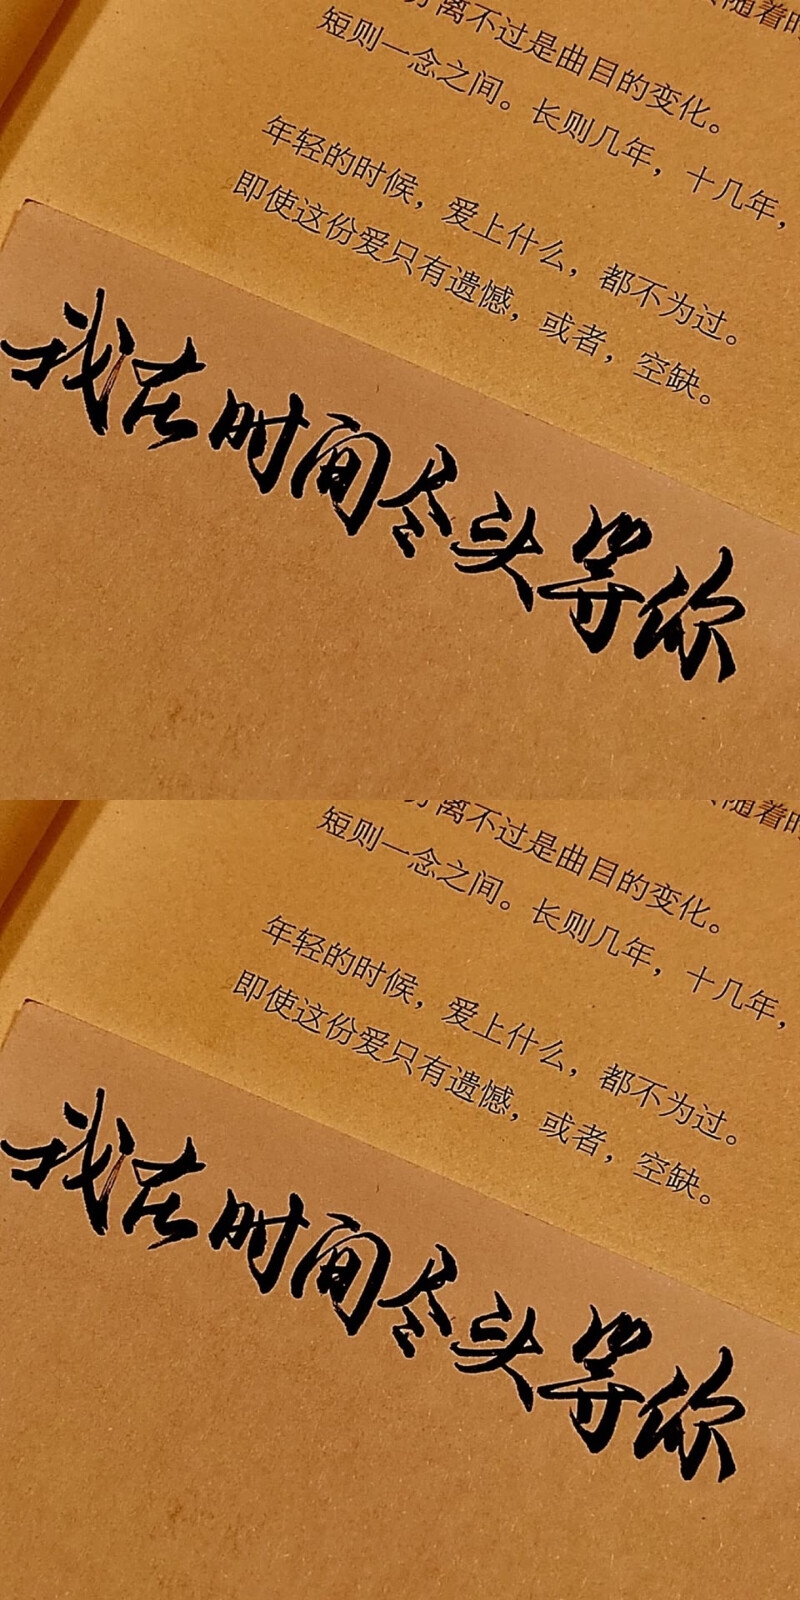 随着时
离不过是曲目的变化。
短则一念之间。长则几年，十几年，
年轻的时候，爱上什么，都不为过。
即使这份爱只有遗憾，或者，空缺。
我在时间尽头等你
随着时
离不过是曲目的变化。
短则一念之间。长则几年，十几年，
年轻的时候，爱上什么，都不为过。
即使这份爱只有遗憾，或者，空缺。
我在时间尽头等你